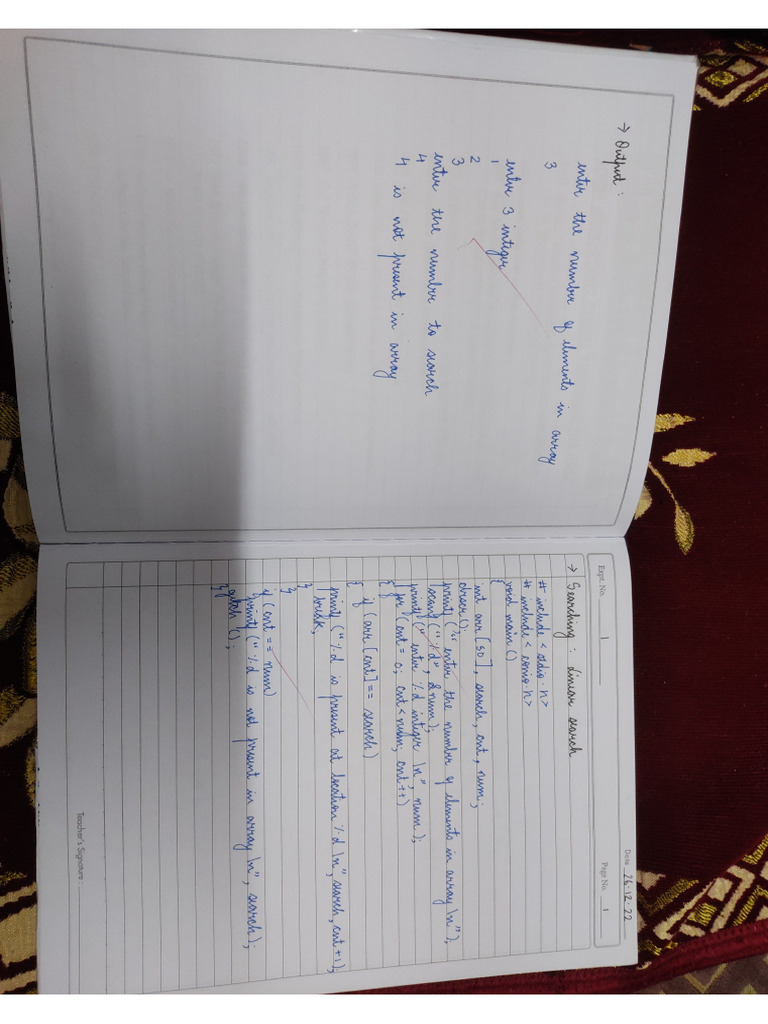 → Output :
enter the number of elements in array
3
enter 3 integer
1
2
3
enter the number to search
4
4 is not present in array
Date 26.12.22
Expt. No. 1
Page No. 1
→ Searching : Linear search
# include < stdio.h>
# include < conio.h>
void main ()
{
int arr [50], search, cnt, num;
clrscr ();
printf ("\n enter the number of elements in array \n");
scanf (" %d", &num);
printf (" enter %d integer \n", num);
for (cnt = 0; cnt < num; cnt++)
{
if (arr [cnt] == search)
{
printf (" %d is present at location %d \n", search, cnt +1);
break;
}
}
if (cnt == num)
printf (" %d is not present in array \n", search);
getch ();
}
Teacher's Signature :